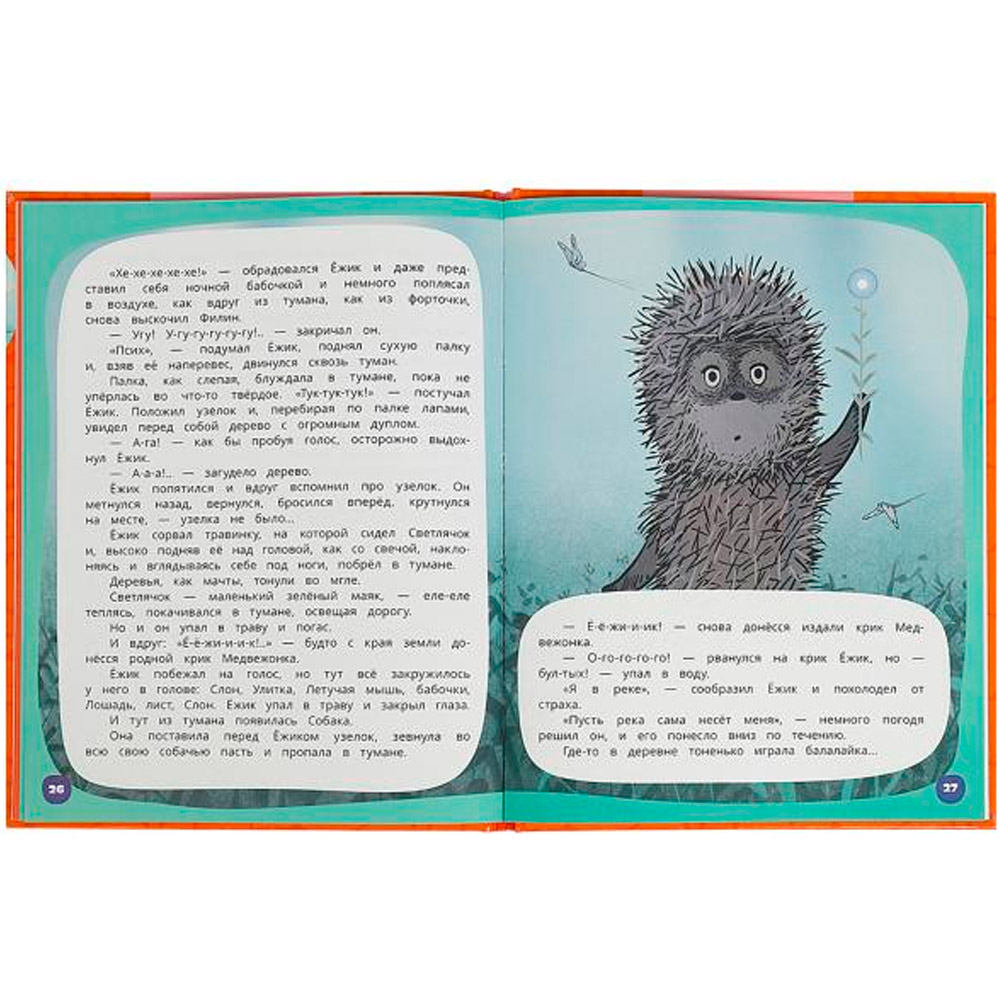 «Хе-хе-хе-хе-хе!» — обрадовался Ёжик и даже пред-
ставил себя ночной бабочкой и немного поплясал
в воздухе, как вдруг из тумана, как из форточки,
снова выскочил Филин.
— Угу! У-гу-гу-гу-гу-гу!.. — закричал он.
«Псих», — подумал Ёжик, поднял сухую палку
и, взяв её наперевес, двинулся сквозь туман.
Палка, как слепая, блуждала в тумане, пока не
упёрлась во что-то твёрдое. «Тук-тук-тук!» — постучал
Ёжик. Положил узелок и, перебирая по палке лапами,
увидел перед собой дерево с огромным дуплом.
— А-га! — как бы пробуя голос, осторожно выдох-
нул Ёжик.
— А-а-а!.. — загудело дерево.
Ёжик попятился и вдруг вспомнил про узелок. Он
метнулся назад, вернулся, бросился вперёд, крутнулся
на месте, — узелка не было...
Ёжик сорвал травинку, на которой сидел Светлячок
и, высоко подняв её над головой, как со свечой, накло-
няясь и вглядываясь себе под ноги, побрёл в тумане.
Деревья, как мачты, тонули во мгле.
Светлячок — маленький зелёный маяк, — еле-еле
теплясь, покачивался в тумане, освещая дорогу.
Но и он упал в траву и погас.
И вдруг: «Ё-ё-жи-и-и-к!..» — будто с края земли до-
нёсся родной крик Медвежонка.
Ёжик побежал на голос, но тут всё закружилось
у него в голове: Слон, Улитка, Летучая мышь, бабочки,
Лошадь, лист, Слон. Ёжик упал в траву и закрыл глаза.
И тут из тумана появилась Собака.
Она поставила перед Ёжиком узелок, зевнула во
всю свою собачью пасть и пропала в тумане.
26
— Ё-ё-жи-и-ик! — снова донёсся издали крик Мед-
вежонка.
— О-го-го-го-го! — рванулся на крик Ёжик, но —
бул-тых! — упал в воду.
«Я в реке», — сообразил Ёжик и похолодел от
страха.
«Пусть река сама несёт меня», — немного погодя
решил он, и его понесло вниз по течению.
Где-то в деревне тоненько играла балалайка...
27